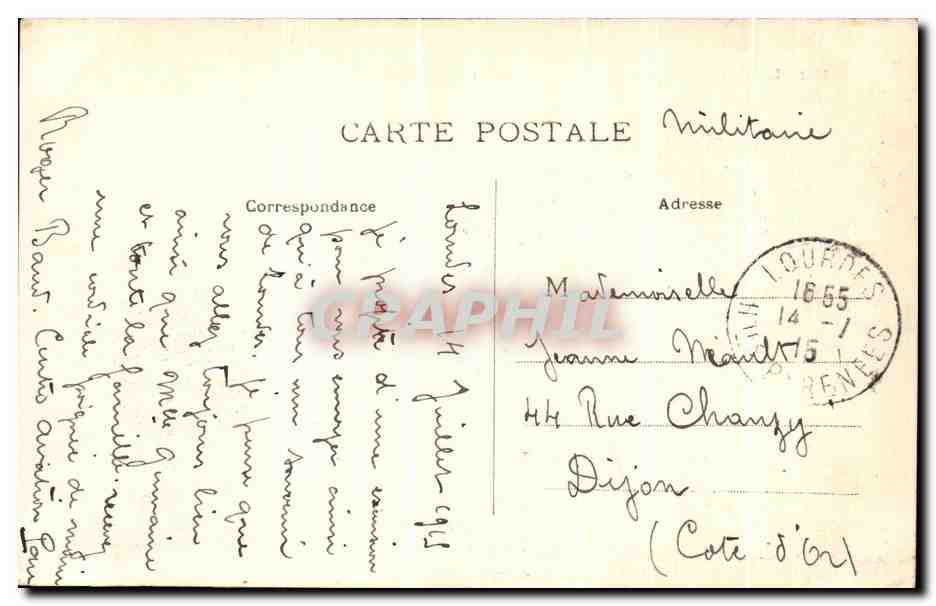 CARTE POSTALE Militaire
Correspondance
Adresse
Lourdes 14 Juillet 1915
Je profite d'une excursion
pour vous envoyer ainsi
qu'à tous un souvenir
de Lourdes. Je pense que
vous allez toujours bien
ainsi que Melle Germaine
et toute la famille. recevez
une cordiale poignée de main
Roger Centre aviation Pau
Mademoiselle
Jeanne
44 Rue Chanzy
Dijon
(Cote d'Or)
LOURDES
16 55
14 -7
15
PYRENEES
CRAPHIL